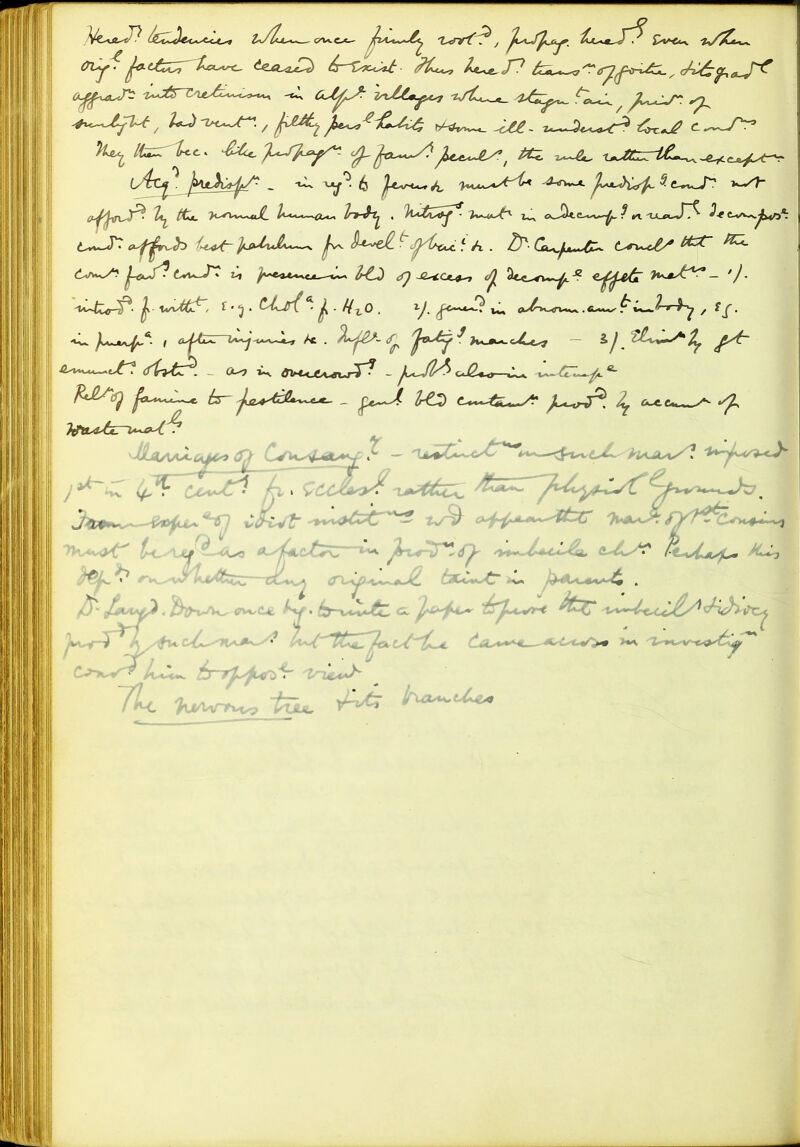 Hered.y tendencies when once firmly root.d, propag. hered.y even when
orig.l factors have ceased to exist. Thus hered.y trans.n of goitre, & its grad.l
aggrad.n into cretinism in alp.n villages where stagn.t air, priv.n of
sunlight, bad vent.n, filthy pers.l habits & some ill-underst.d local cond.ns
They then bec. like propag.n of fam.y pecul.s, the rule rather than except.n
Acq.d predisp.n - in reg.d to fevers &c must be some predisp.g cond.n not
afford.d by the normal human body. Nitrog.s mat.r in a decomp.g or read.l decompos.
cond.n affords best pabulum for devel.t of bac.a &c. Dr. Carpenter concl.s tht the
com.n fav.g cond.n is presence in bld of excess of decomp.g effete mat.rs - 1/.
introd.d f. with.t, e.g. Chol.a f. H2O. 2/. gener.d in abnorm. am.t in body, e.g.
in puerp.a, after injuries &c. Infl.ce of fatig.g marches - 3/. Elim.n by gt
emunct.s obst.d - as in overcrowd.g - prob.y also in intemp.ce
Rel.n of famine to pestilence - gen.l bld contam.n prod.d by accum.n of
waste mat.l
Marriages of Consang.y - restrict.ns on such mar.s imposed
1st in 4th cent.y fr. eccles.l rather than physical grounds.
From exper.ce of idiot instit.ns wd appear tht mar.s of 1st Cousins
must be reg.d as a factor in prod.n of imbecile ch.n Perhaps this
dep.s on whether any original taint in parents.
Dr. Langd. Down once beg. to write a paper to prove tht imbecil.y & idiocy
prod.d by such mar.s but the facts he came across in investig.n
conv.d him to oppos.e view
The nervous tree & its branches